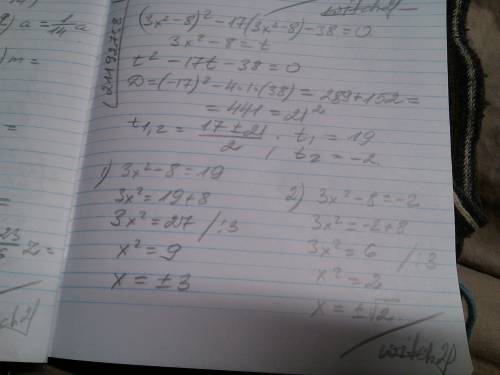 witch21
9) a = 1/14 a
(21192718
(3x²-8)² -17(3x²-8) -38=0
3x²-8=t
) m =
t²-17t-38=0
D=(-17)²-4·1·(38) = 289+152 =
= 441 = 21²
t₁,₂ = 17±21/2 ; t₁ = 19
t₂ = -2
1) 3x²-8=19
3x²=19+8
3x²=27 /:3
x²=9
x=±3
2) 3x²-8=-2
3x²=-2+8
3x²=6 /:3
x²=2
x=±√2
witch21